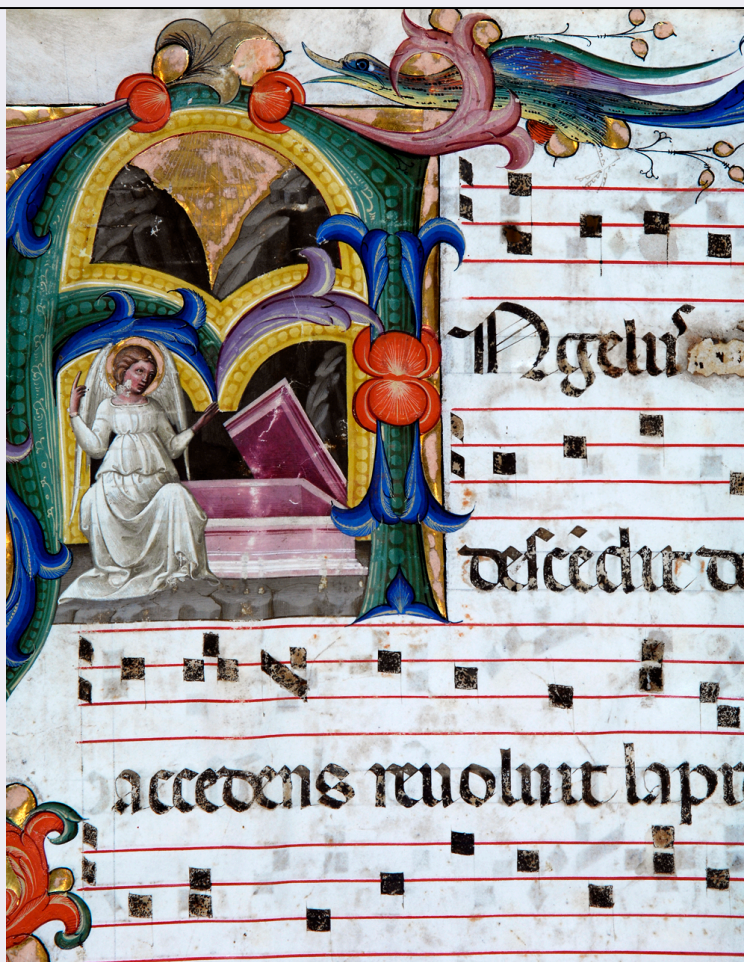 ANgelus
deſcēdit de
accedens reuoluit lapi